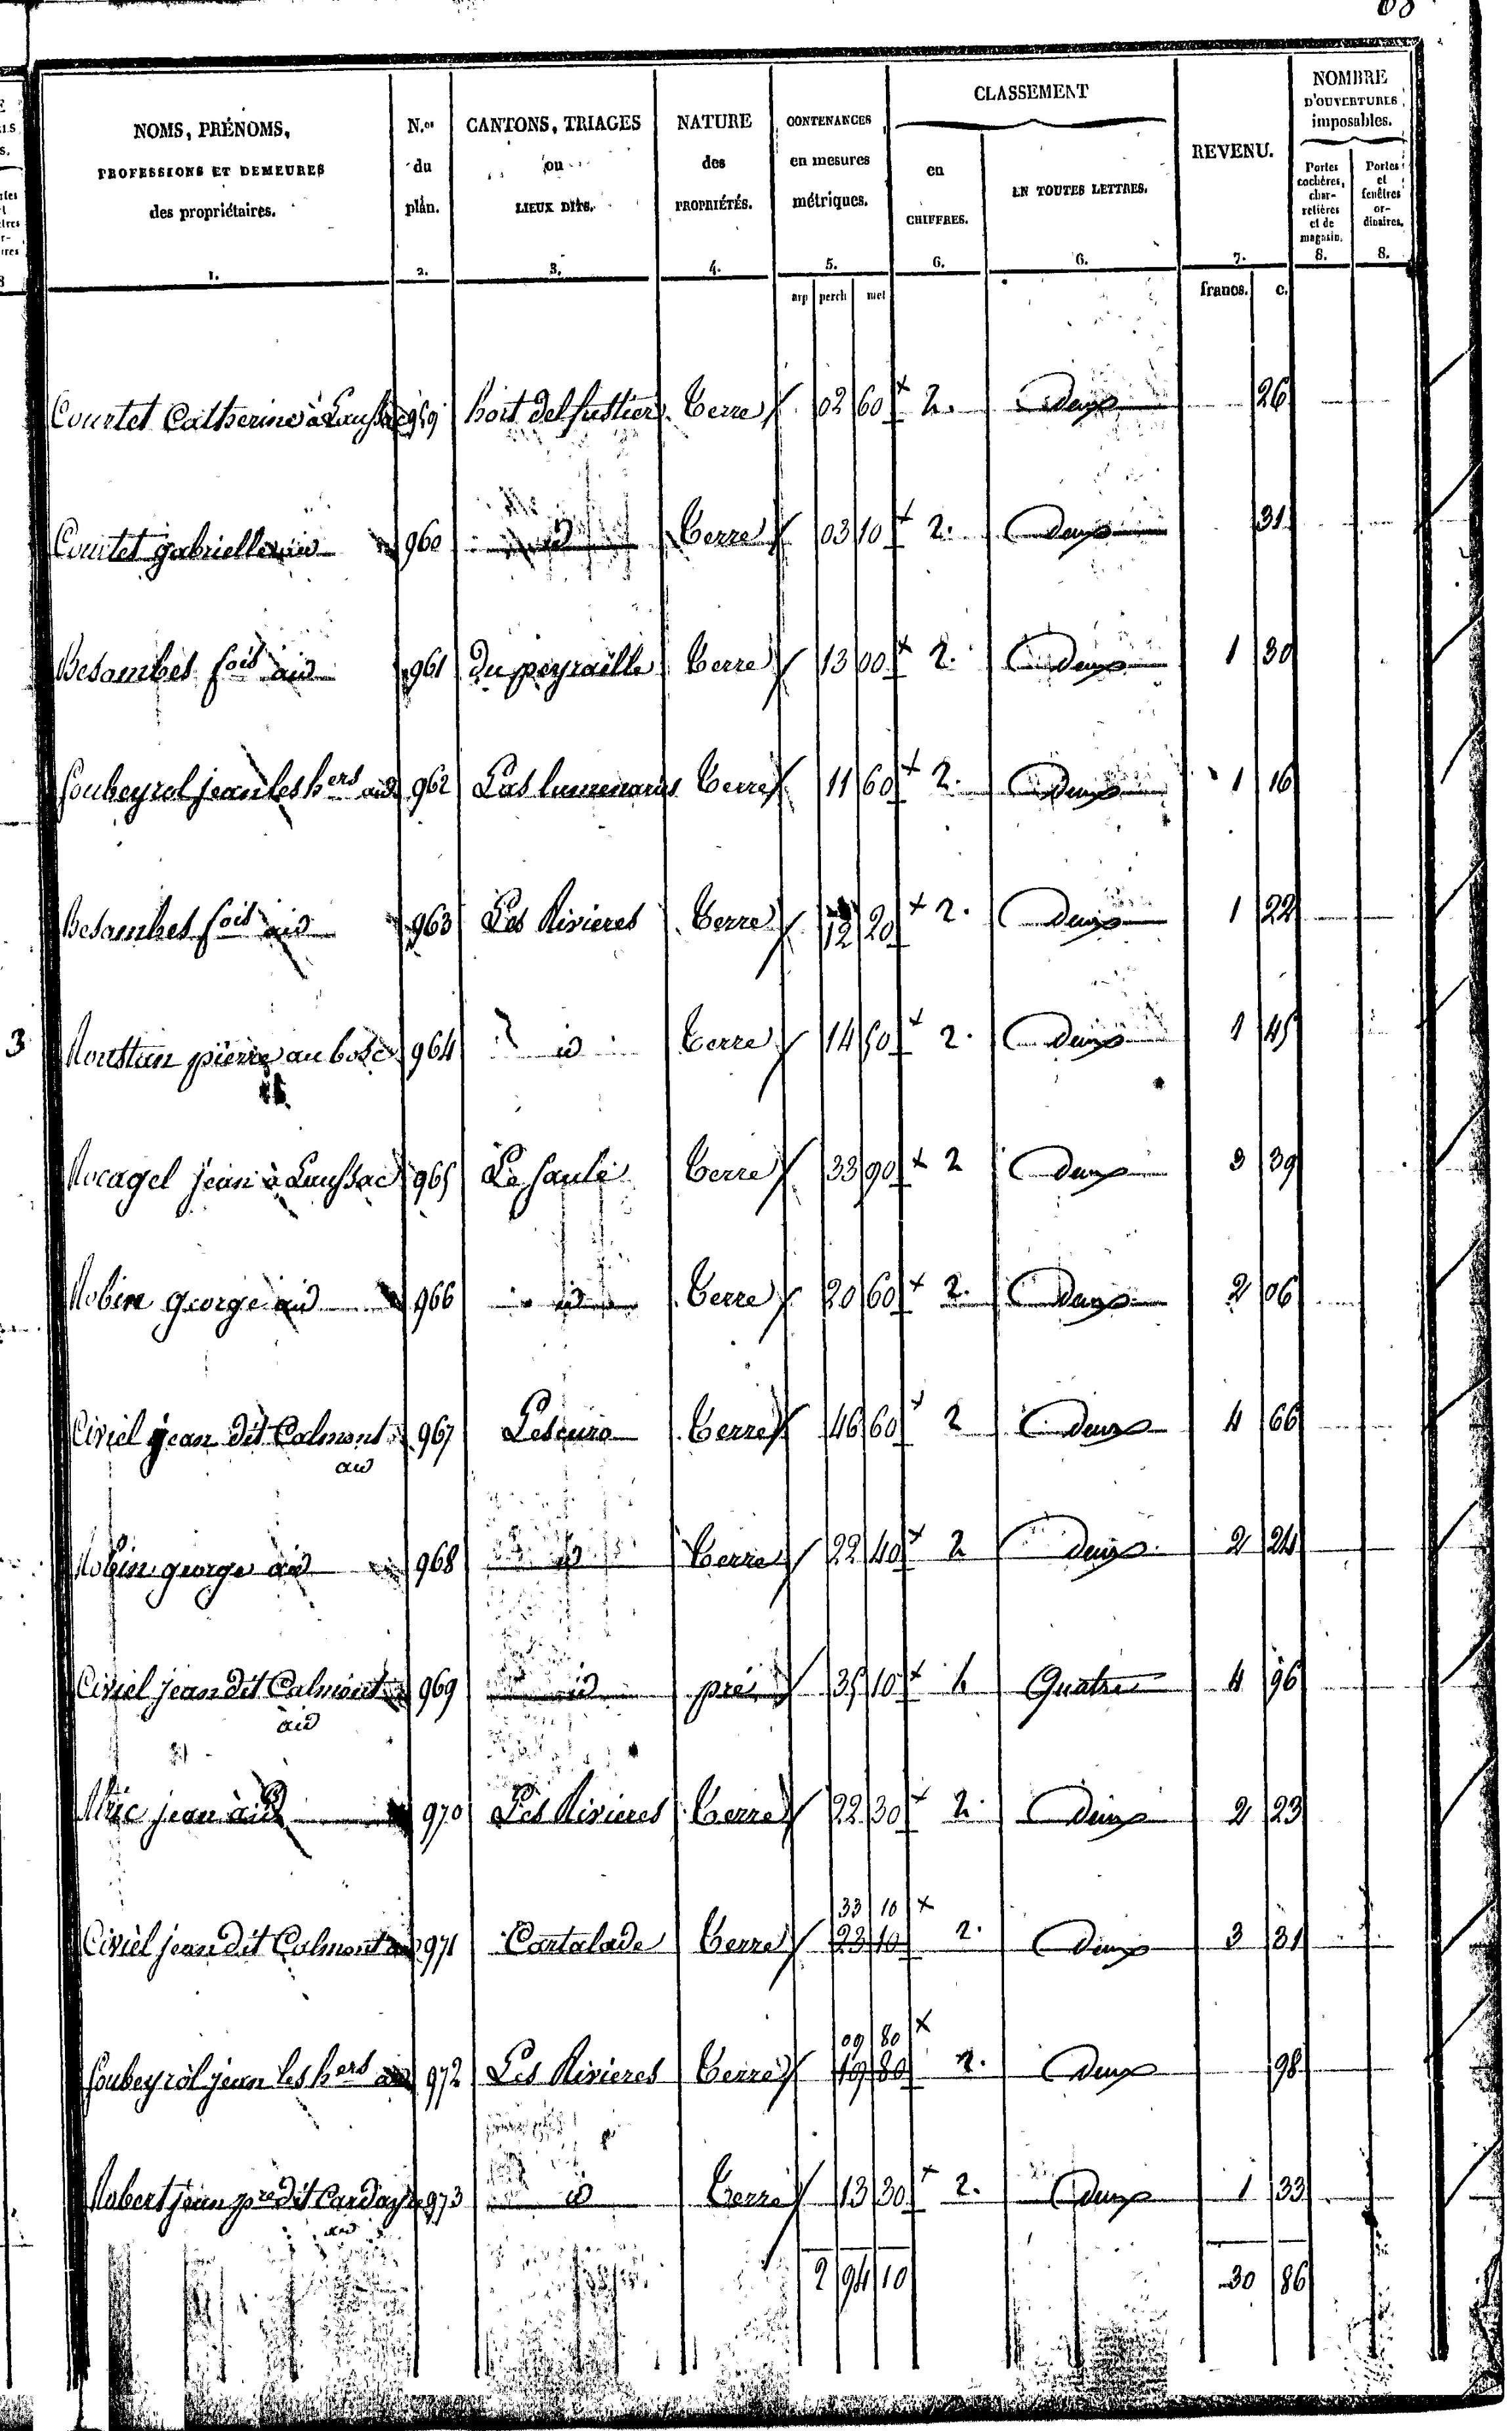 NOMS, PRÉNOMS, PROFESSIONS ET DEMEURES des propriétaires. 1.
N.os du plan. 2.
CANTONS, TRIAGES ou LIEUX DITS. 3.
NATURE des PROPRIÉTÉS. 4.
CONTENANCES en mesures métriques. 5.
CLASSEMENT
en CHIFFRES. 6.
EN TOUTES LETTRES. 6.
REVENU. 7.
NOMBRE D'OUVERTURES imposables.
Portes cochères, charretières et de magasin. 8.
Portes et fenêtres ordinaires. 8.
arp perch met francs. c.
Courtet Catherine à Laussac 959 hort del fustier Terre 02 60 2. Deux 26
Courtet gabrielle à id 960 id Terre 03 10 2. Deux 31
Besambes fois à id 961 Du peyraille Terre 13 00 2. Deux 1 30
Soubeyrol jean les hers à id 962 Las Terre 11 60 2. Deux 1 16
Besambes fois à id 963 Les Rivieres Terre 12 20 2. Deux 1 22
pierre au bosc 964 id Terre 14 50 2. Deux 1 45
Rocagel jean à Laussac 965 Le saule Terre 33 90 2 Deux 3 39
Robin george à id 966 id Terre 20 60 2. Deux 2 06
Civiel jean dit Calmont à id 967 Terre 46 60 2 Deux 4 66
Robin george à id 968 id Terre 22 40 2 Deux 2 24
Civiel jean dit Calmont à id 969 id pré 35 10 4 Quatre 4 96
Alric jean à id 970 Les Rivieres Terre 22 30 2. Deux 2 23
33 10
Civiel jean dit Calmont à id 971 Cartalade Terre 23 10 2. Deux 3 31
09 80
Soubeyrol jean les hers à id 972 Les Rivieres Terre 19 80 2. Deux 98
Robert jean pre dit Cardayre à id 973 id Terre 13 30 2. Deux 1 33
2 94 10 30 86